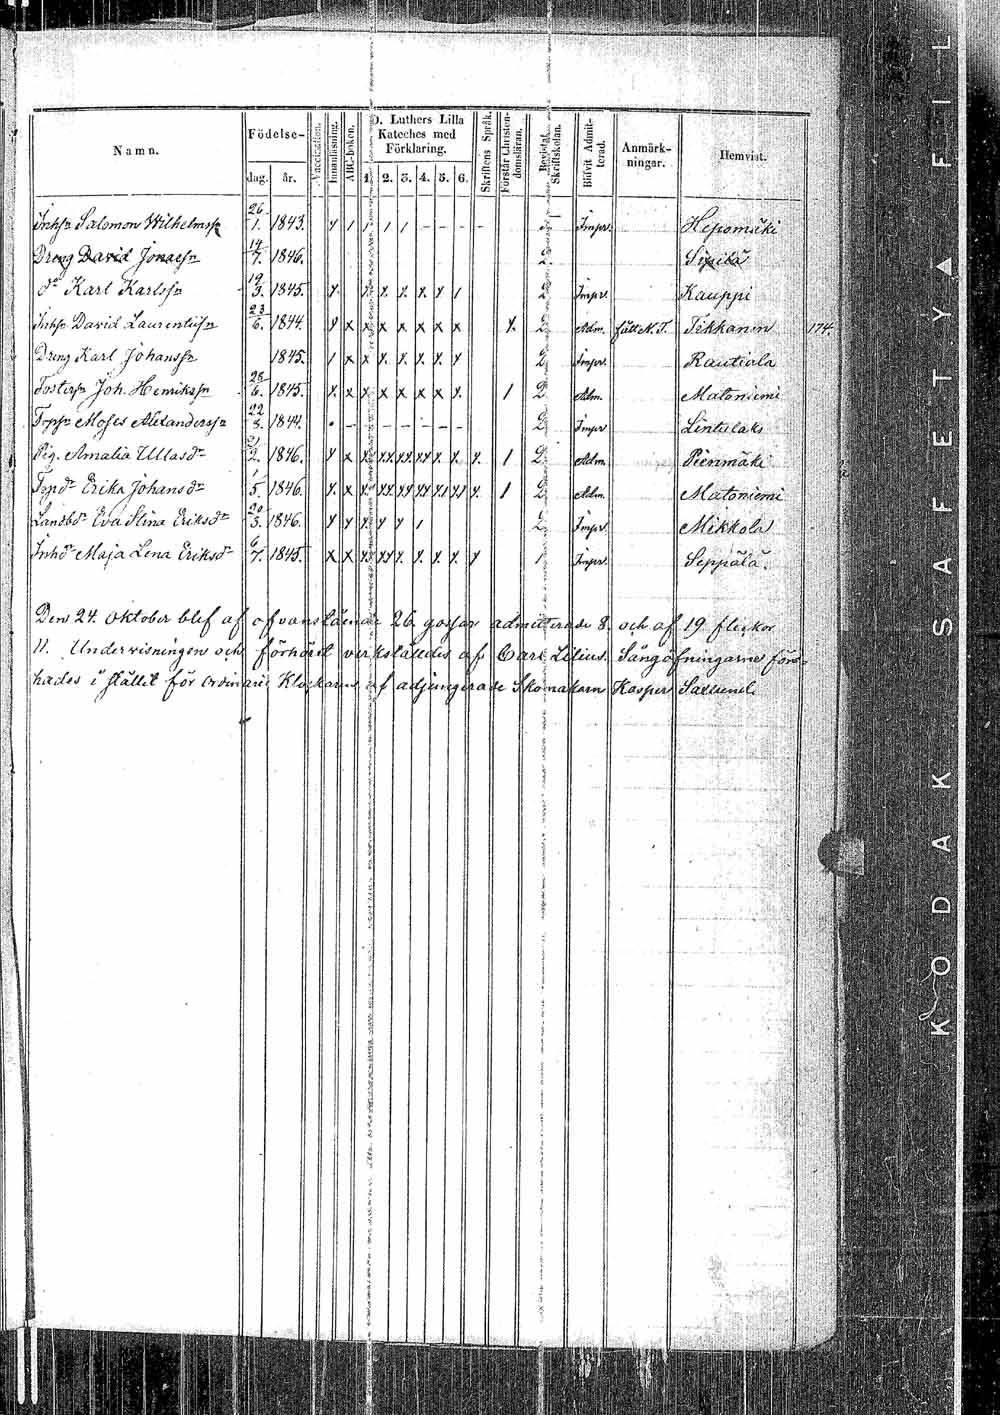 Namn. Födelse- dag. år. Vaccination. Innanläsning. ABC-boken. D. Luthers Lilla Kateches med Förklaring. 1. 2. 3. 4. 5. 6. Skriftens Språk. Förstår Christendomsläran. Bevistat Skriftskolan. Blifvit Admitterad. Anmärkningar. Hemvist.
Inhsn Salomon Wilhelmssn 26/1. 1843. Y 1 1 1 1 - - - - Impr. Hepomäki
Dreng David Jonaesn 14/7. 1846. 2. Sipilä
do Karl Karlssn 19/3. 1845. Y. x. x. x. x. x 1 2 Impr. Kauppi
Inhsn David Laurentiisn 23/6. 1844. Y x x x x x x x Y. 2 Adm. Tikkanen 174.
Dreng Karl Johanssn 1845. 1 x x x. x. x. x Y 2 Impr. Rautiola
Fostersn Joh. Henrikssn 28/6. 1845. Y. x x x x x x x. 1 2 Adm. Matoniemi
Torpsn Moses Alexanderssn 22/3. 1844. - - - - - - - 2 Impr Lintulaks
Pig. Amalia Ullasdr 21/2. 1846. Y x x. xx xx. xx x. x. x. 1 2 Adm. Pienmäki
Torpdr Erika Johansdr 1/5. 1846. x. x x. xx. xx xx x1 x1 x. 1 2 Adm. Matoniemi
Landbdr Eva Stina Eriksdr 20/3. 1846. Y Y Y. Y Y 1 2 Impr. Mikkola
Inhdr Maja Lena Eriksdr 6/7. 1845. x x x. xx x. x. x. x. x 1 Impr. Seppälä.
Den 24. Oktober blef af ofvanstående 26. gossar admitterade 8. och af 19 flickor
11. Undervisningen och förhöret verkställdes af Carl Lilius. Sångöfningarne före-
hades i stället för ordinarie Klockaren af adjungerade Skomakarn Kasper Saxlund.
KODAK SAFETY ▲ FIL